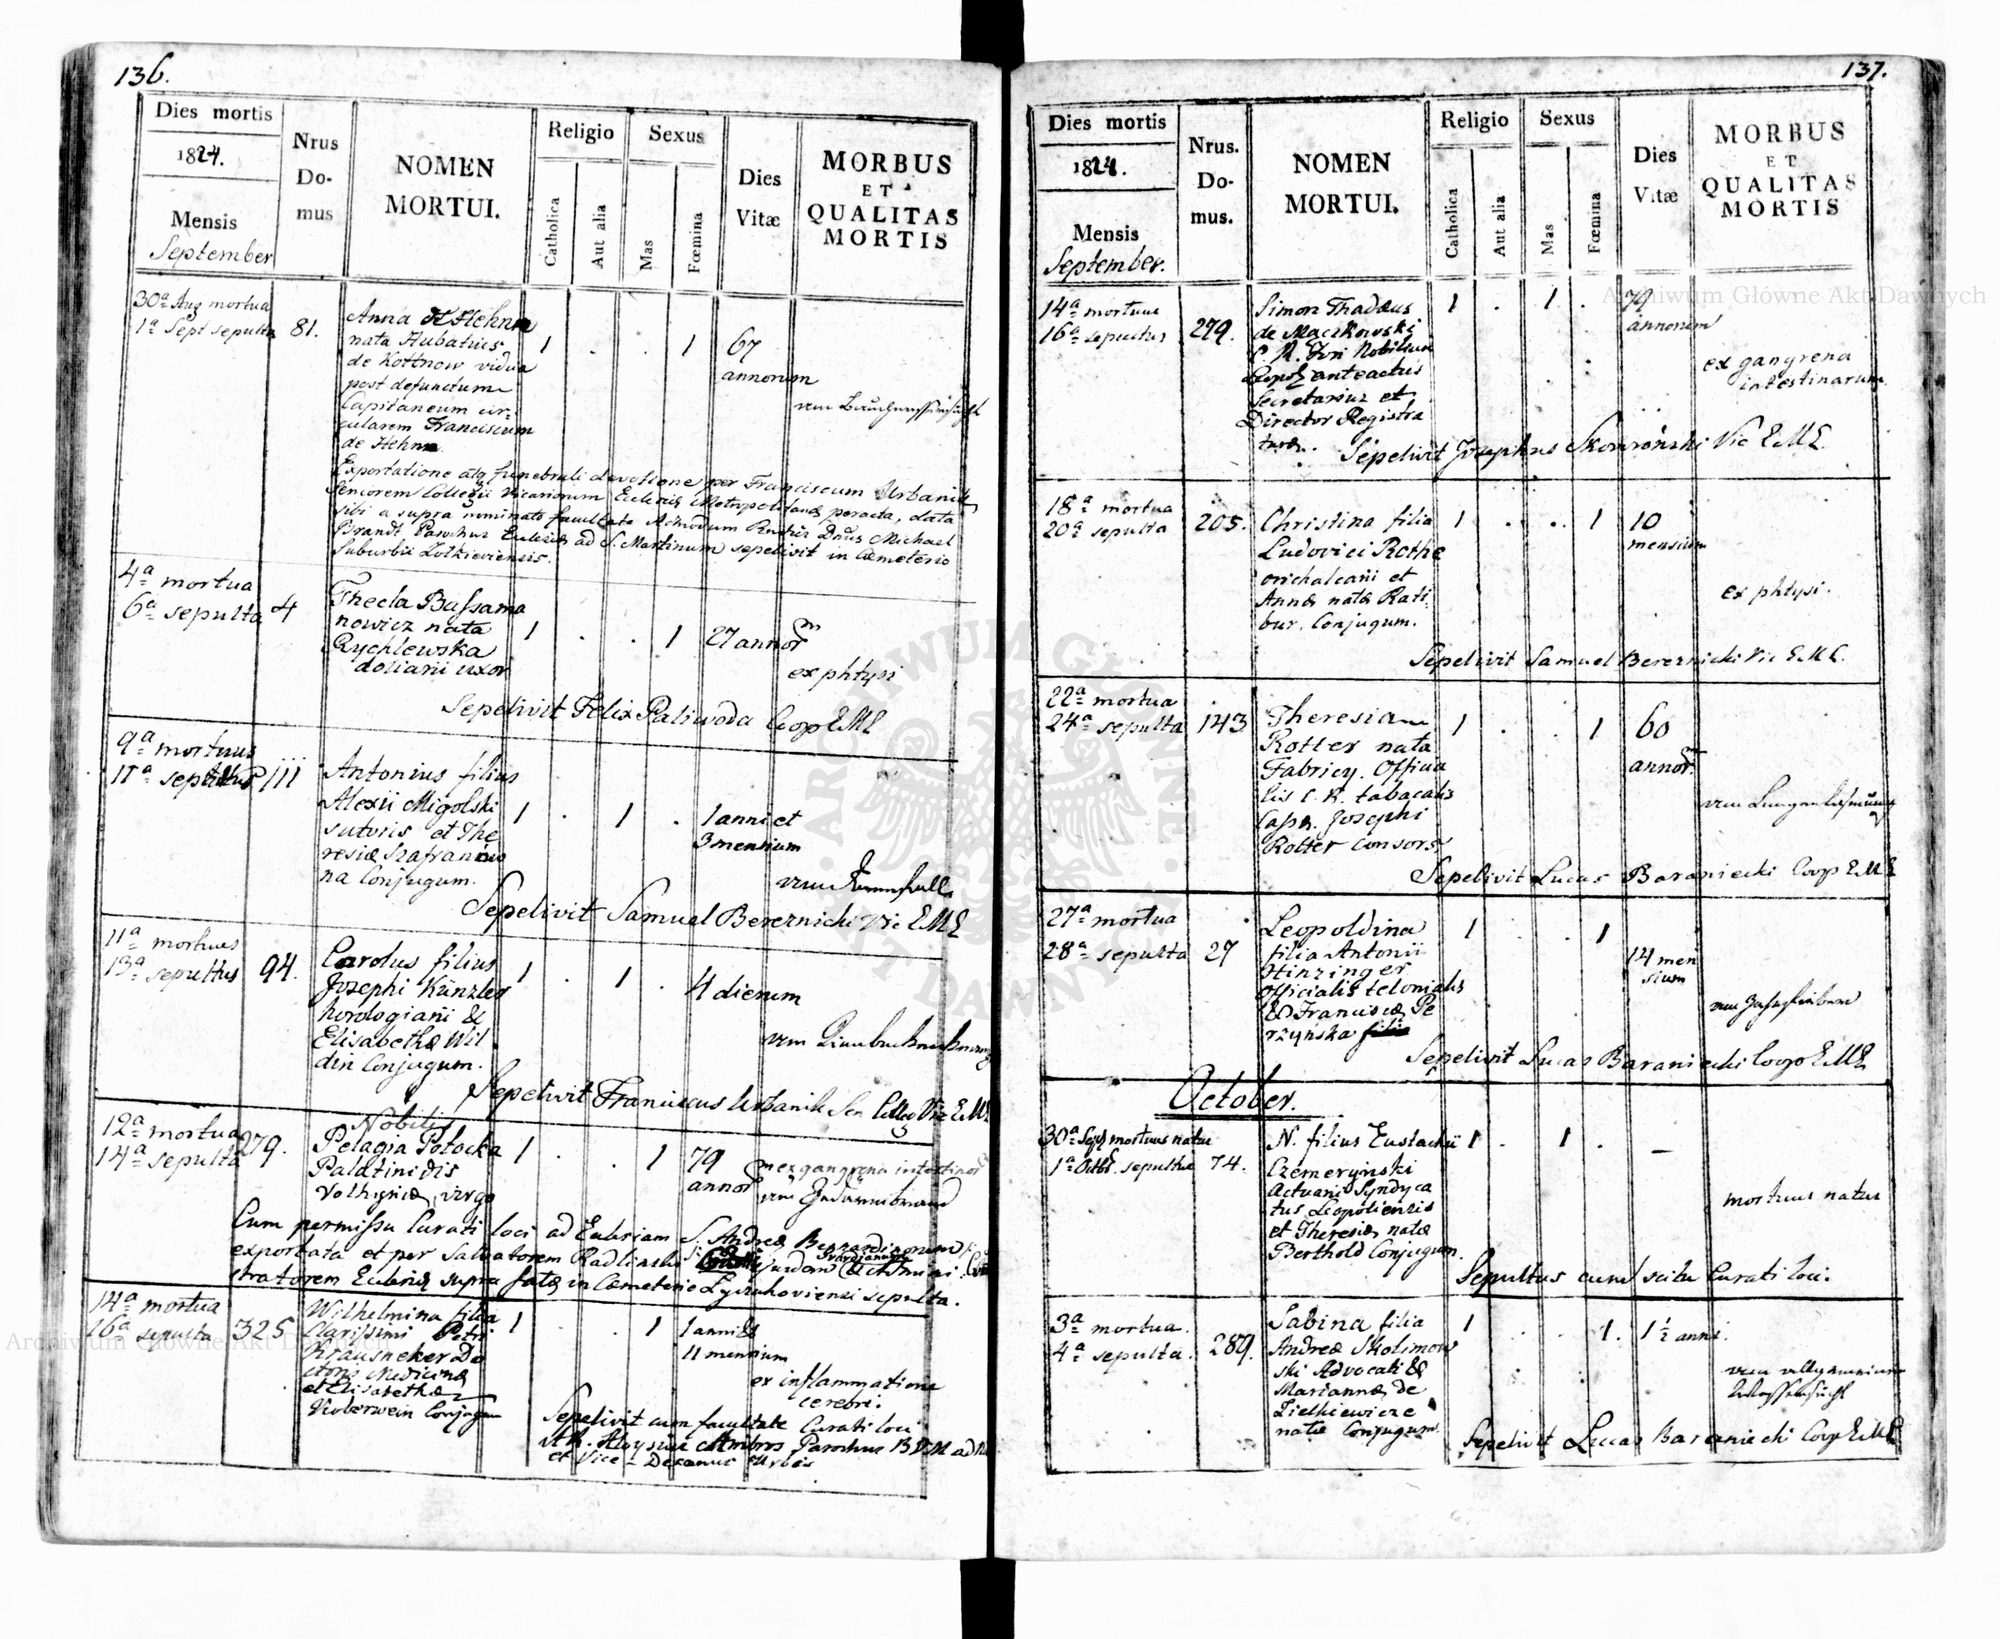 136.
Dies mortis
1824.
Mensis
September
Nrus
Do-
mus
NOMEN
MORTUI.
Religio
Catholica
Aut alia
Sexus
Mas
Fœmina
Dies
Vitæ
MORBUS
ET
QUALITAS
MORTIS
30ª Aug mortua
1ª Sept sepulta
81.
Anna de Hehn
nata Hubatius
de Kottnow vidua
post defunctum
Capitaneum cir-
cularem Franciscum
de Hehn
1 . . 1
67
annorum
Exportatione atq funebrali devotione per Franciscum Urbanik
Seniorem Collegii Vicariorum Ecclesiæ Metropolitanæ peracta, data
sibi a supra nominato facultate Admodum Rndus Dnus Michael
Brandt Parochus Ecclesiæ ad S. Martinum sepelivit in Cœmeterio
Suburbii Zolkieviensis.
4ª mortua
6ª sepulta
4
Thecla Bassama
nowicz nata
Rychlewska
doliarii uxor
1 . . 1
27 annor
ex phtysi
Sepelivit Felix Paliwoda Coop EME
9ª mortuus
11ª sepultus
111
Antonius filius
Alexii Migolski
sutoris et The
resiæ Szafranow
na Conjugum.
1 . 1 .
1 anni et
3 mensium
Sepelivit Samuel Bereznicki Vic EME
11ª mortuus
13ª sepultus
94.
Carolus filius
Josephi Künzler
horologiani &
Elisabethæ Wil
din Conjugum.
1 . 1 .
4 dierum
Sepelivit Franciscus Urbanik Sen Colleg Vic EME
12ª mortua
14ª sepulta
279.
Nobilis
Pelagia Potocka
Palatinidis
Volhyniæ, virgo
1 . . 1
79
annor
ex gangrena intestinor
Cum permissu Curati loci ad Ecclesiam S. Andreæ Bernardinorum
exportata et per Salvatorem Radlinski
Gvardianum
stratorem Ecclesiæ supra fatæ in Cœmeterio Lyczakoviensi sepulta.
14ª mortua
16ª sepulta
325
Wilhelmina filia
Clarissimi Petri
Krausneker Do
ctoris Medicinæ
et Elisabethæ
Koberwein Conjugum
1 . . 1
1 anni &
11 mensium
ex inflammatione
cerebri.
Sepelivit cum facultate Curati loci
AR. Aloysius Ambros Parochus BVM ad
et Vice-Decanus Urbis
137.
Dies mortis
1824.
Mensis
September.
Nrus.
Do-
mus.
NOMEN
MORTUI.
Religio
Catholica
Aut alia
Sexus
Mas
Fœmina
Dies
Vitæ
MORBUS
ET
QUALITAS
MORTIS
14ª mortuus
16ª sepultus
279.
Simon Thadæus
de Maczkowski
C. R. Fori Nobilium
Leopol anteactus
Secretarius et
Director Registra
turæ.
1 . 1 .
79
annorum
ex gangrena
intestinarum
Sepelivit Josephus Skowroński Vic EME.
18ª mortua
20ª sepulta
205.
Christina filia
Ludovici Rothe
orichalcarii et
Annæ natæ Rati
bur. Conjugum.
1 . . 1
10
mensium
ex phtysi.
Sepelivit Samuel Bereznicki Vic EME.
22ª mortua
24ª sepulta
143
Theresia
Rotter nata
Fabricy. Officia
lis C. R. tabacalis
Cassæ. Josephi
Rotter consors
1 . . 1
60
annor.
Sepelivit Lucas Baraniecki Coop EME
27ª mortua
28ª sepulta
27
Leopoldina
filia Antonii
Hinzinger
Officialis telonialis
& Franciscæ Pe
rzynska
1 . . 1
14 men
sium
Sepelivit Lucas Baraniecki Coop EME
October.
30ª Sept mortuus natus
1ª Octbr. sepultus
74.
N. filius Eustachii
Czemeryński
Actuarii Syndyca
tus Leopoliensis
et Theresiæ natæ
Berthold Conjugum.
1 . 1 .
–
mortuus natus
Sepultus cum scitu Curati loci.
3ª mortua.
4ª sepulta.
289.
Sabina filia
Andreæ Skolimow
ski Advocati &
Mariannæ de
Zielkiewicze
natæ Conjugum.
1 . . 1.
1½ anni.
Sepelivit Lucas Baraniecki Coop EME
Archiwum Główne Akt Dawnych
Archiwum Główne Akt Dawnych
ARCHIWUM GŁÓWNE AKT DAWNYCH